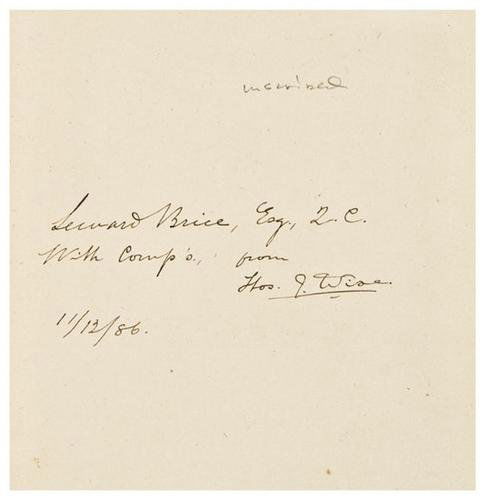 inscribed
Seward Brice, Esq., Q.C.
With Comp's., from
Thos. J. Wise.
11/12/86.